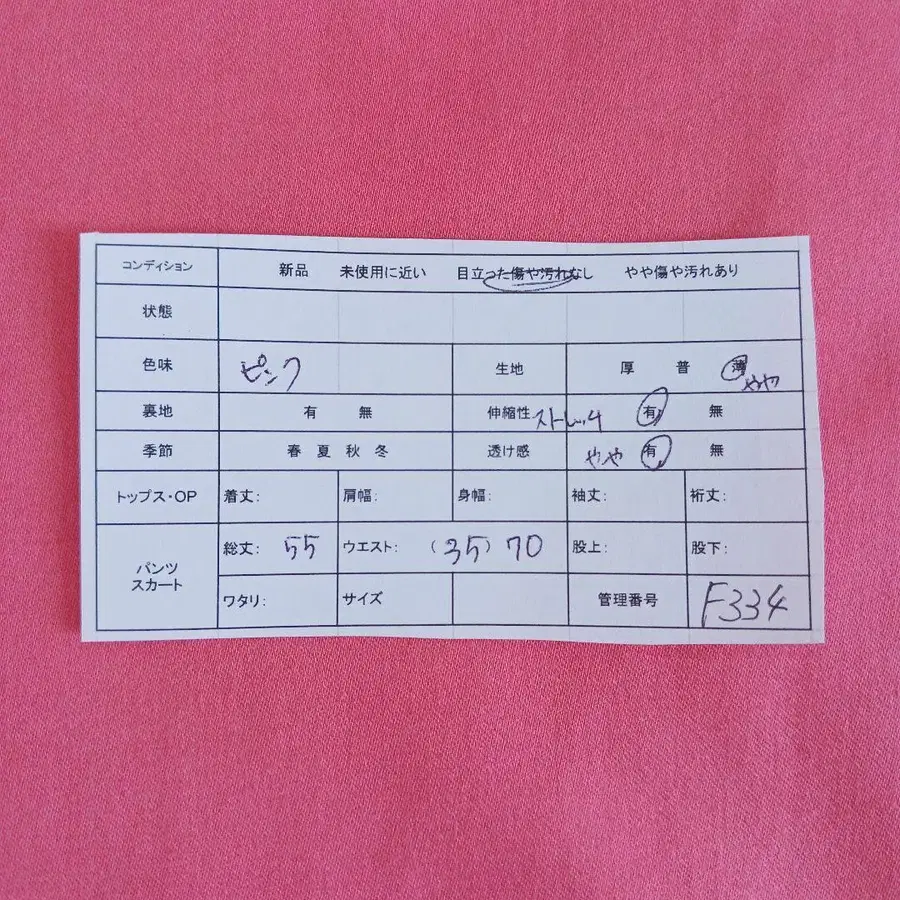 コンディション 新品 未使用に近い 目立った傷や汚れなし やや傷や汚れあり
状態
色味 ピンク 生地 厚 普 薄 やや
裏地 有 無 伸縮性 ストレッチ 有 無
季節 春 夏 秋 冬 透け感 やや 有 無
トップス・OP 着丈: 肩幅: 身幅: 袖丈: 裄丈:
パンツ スカート 総丈: 55 ウエスト: (35) 70 股上: 股下:
ワタリ: サイズ 管理番号 F334